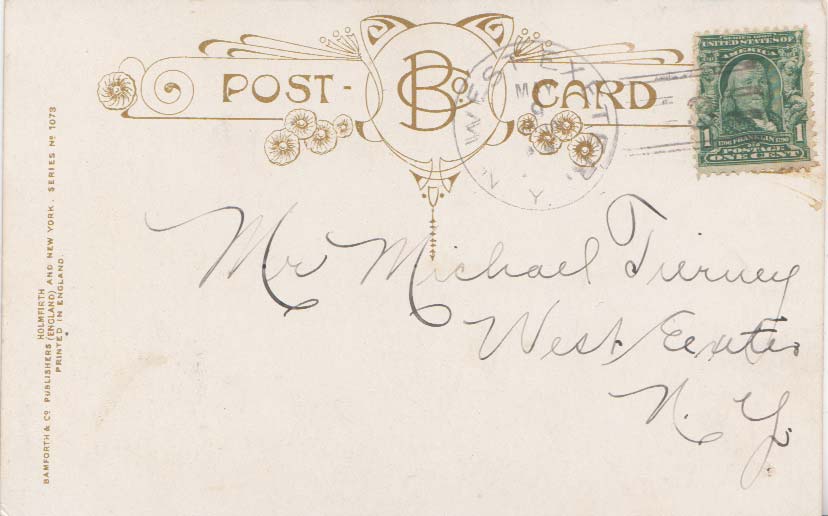 POST- BCo CARD
WEST EXETER
MAY
N.Y.
UNITED STATES OF
AMERICA
1 FRANKLIN 1
1706 1790
POSTAGE
ONE CENT
Mr Michael Tierney
West Exeter
N. Y.
HOLMFIRTH
BAMFORTH & Co PUBLISHERS (ENGLAND) AND NEW YORK. SERIES No 1073
PRINTED IN ENGLAND.